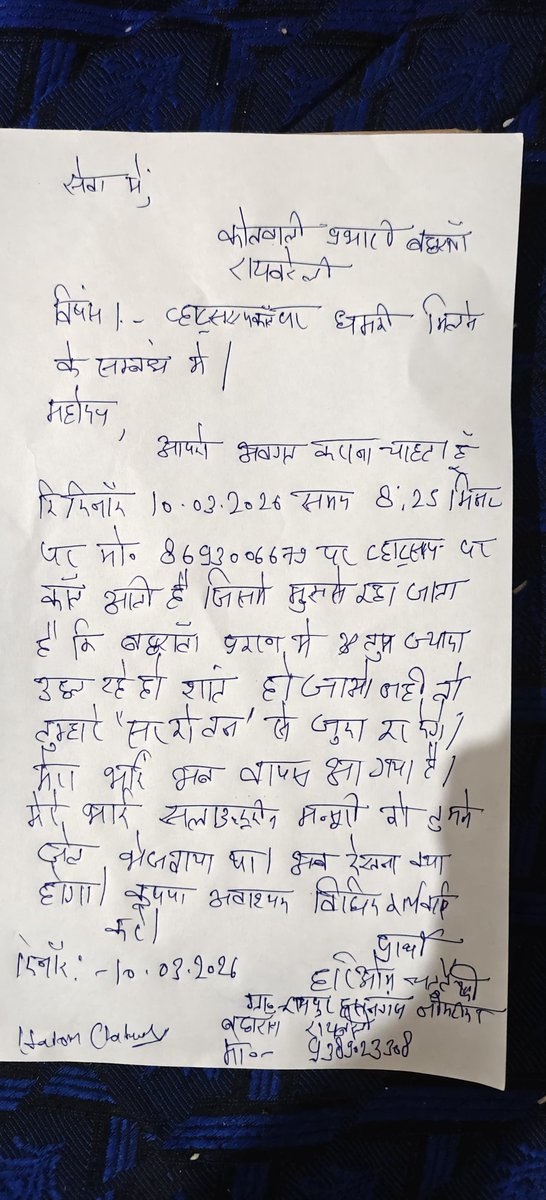 सेवा में,
कोतवाली प्रभारी बछरावाँ
रायबरेली
विषय :- व्हाट्सएप कॉल पर धमकी मिलने
के सम्बंध में |
महोदय,
आपको अवगत कराना चाहता हूँ
कि दिनाँक 10.03.2026 समय 8:25 मिनट
पर मो० 8693006679 पर व्हाट्सएप पर
कॉल आती है जिसमे मुझसे कहा जाता
है कि बछरावाँ प्रकरण मे तुम ज्यादा
उछल रहे हो शांत हो जाओ नही तो
तुम्हारे "सर को तन" से जुदा करा देंगे|
मेरा भाई अब वापस आ गया है|
मेरे भाई सलाउद्दीन मन्सूरी को तुमने
जेल भेजवाया था| अब देखना क्या
होगा| कृपया आवश्यक विधिक कार्यवाई
करें|
प्रार्थी
दिनाँक :- 10.03.2026
हरिओम चतुर्वेदी
बछरावाँ रायबरेली
मो०-